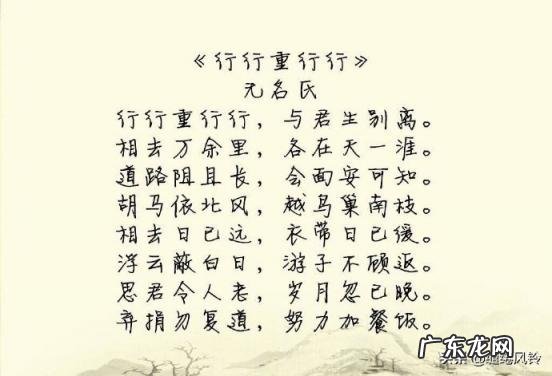 《行行重行行》
无名氏
行行重行行，与君生别离。
相去万余里，各在天一涯。
道路阻且长，会面安可知。
胡马依北风，越鸟巢南枝。
相去日已远，衣带日已缓。
浮云蔽白日，游子不顾返。
思君令人老，岁月忽已晚。
弃捐勿复道，努力加餐饭。
广东龙网